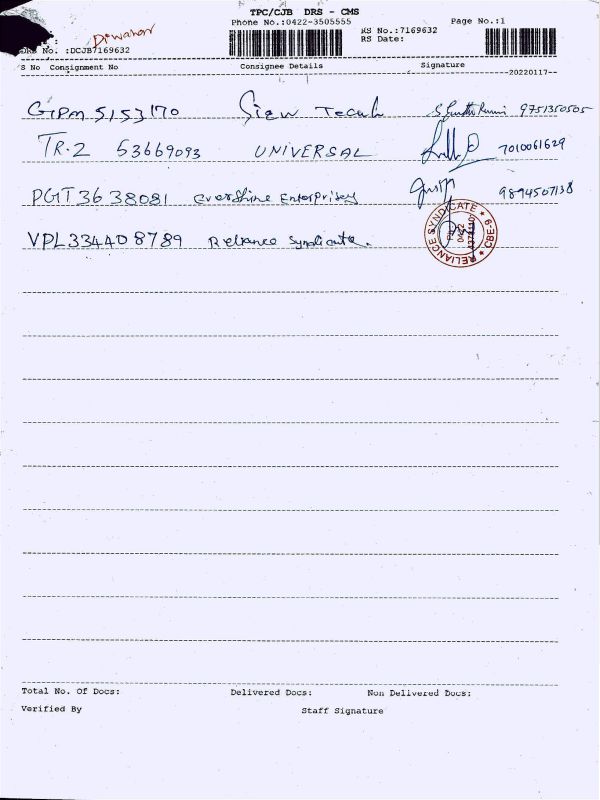 TPC/CJB DRS - CMS
Phone No.:0422-3505555
Page No.:1
Diwahar
DRS No. :DCJB7169632
RS No.:7169632
RS Date:
S No Consignment No Consignee Details Signature
20220117
GTPM 5153170 Sign Tecah 9751350505
TR.2 53669093 UNIVERSAL 7010061629
PGT3638081 Evershine Enterprises 9894507138
VPL334408789 Reliance Syndicate.
RELIANCE SYNDICATE ★ CBE-9 ★
0422
Total No. Of Docs: Delivered Docs: Non Delivered Docs:
Verified By Staff Signature